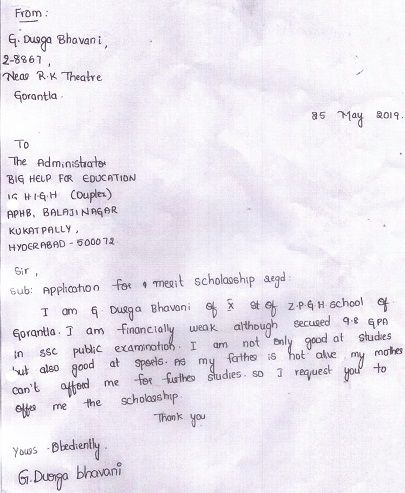 From:
G. Durga Bhavani,
2-8867,
Near R.K Theatre
Gorantla.
25 May 2019.
To
The Administrator
BIG HELP FOR EDUCATION
H.I.G.H (Duplex)
APHB, BALAJI NAGAR
KUKATPALLY,
HYDERABAD - 500072.
Sir,
Sub: Application for merit scholarship regd:
I am G Durga Bhavani of X of Z.P.G.H school of
Gorantla. I am financially weak although secured 9.8 GPA
in ssc public examination. I am not only good at studies
but also good at sports. As my father is not alive my mother
can't afford me for further studies. so I request you to
offer me the scholarship.
Thank you
Yours Obediently.
G. Durga bhavani